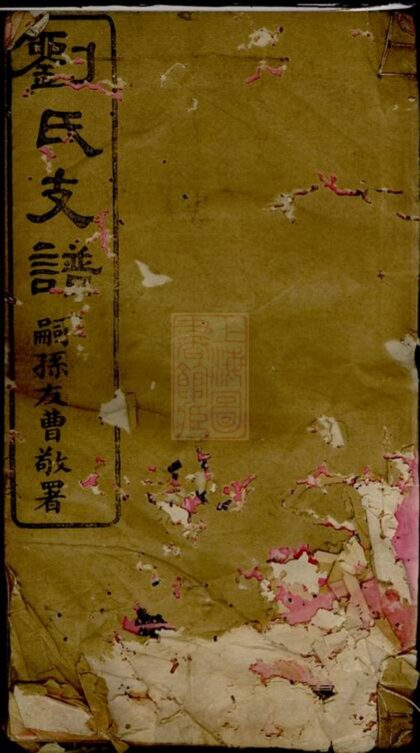 劉氏支譜
嗣孫友曹敬署
上海圖
書館藏